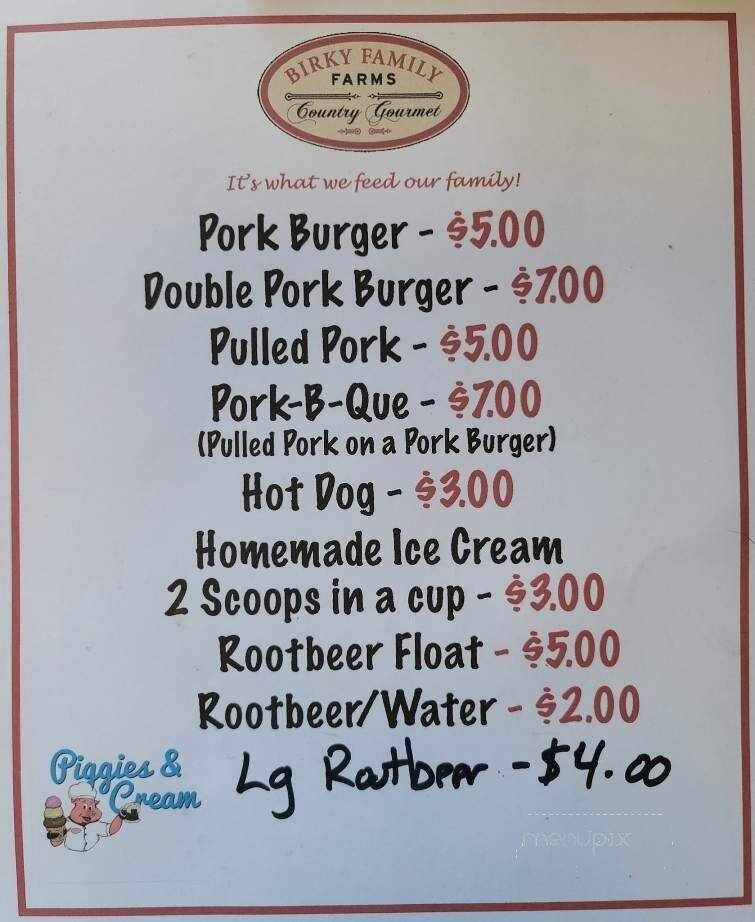 BIRKY FAMILY
FARMS
Country Gourmet
It's what we feed our family!
Pork Burger - $5.00
Double Pork Burger - $7.00
Pulled Pork - $5.00
Pork-B-Que - $7.00
(Pulled Pork on a Pork Burger)
Hot Dog - $3.00
Homemade Ice Cream
2 Scoops in a cup - $3.00
Rootbeer Float - $5.00
Rootbeer/Water - $2.00
Piggies &
Cream
Lg Rootbeer - $4.00
menupix